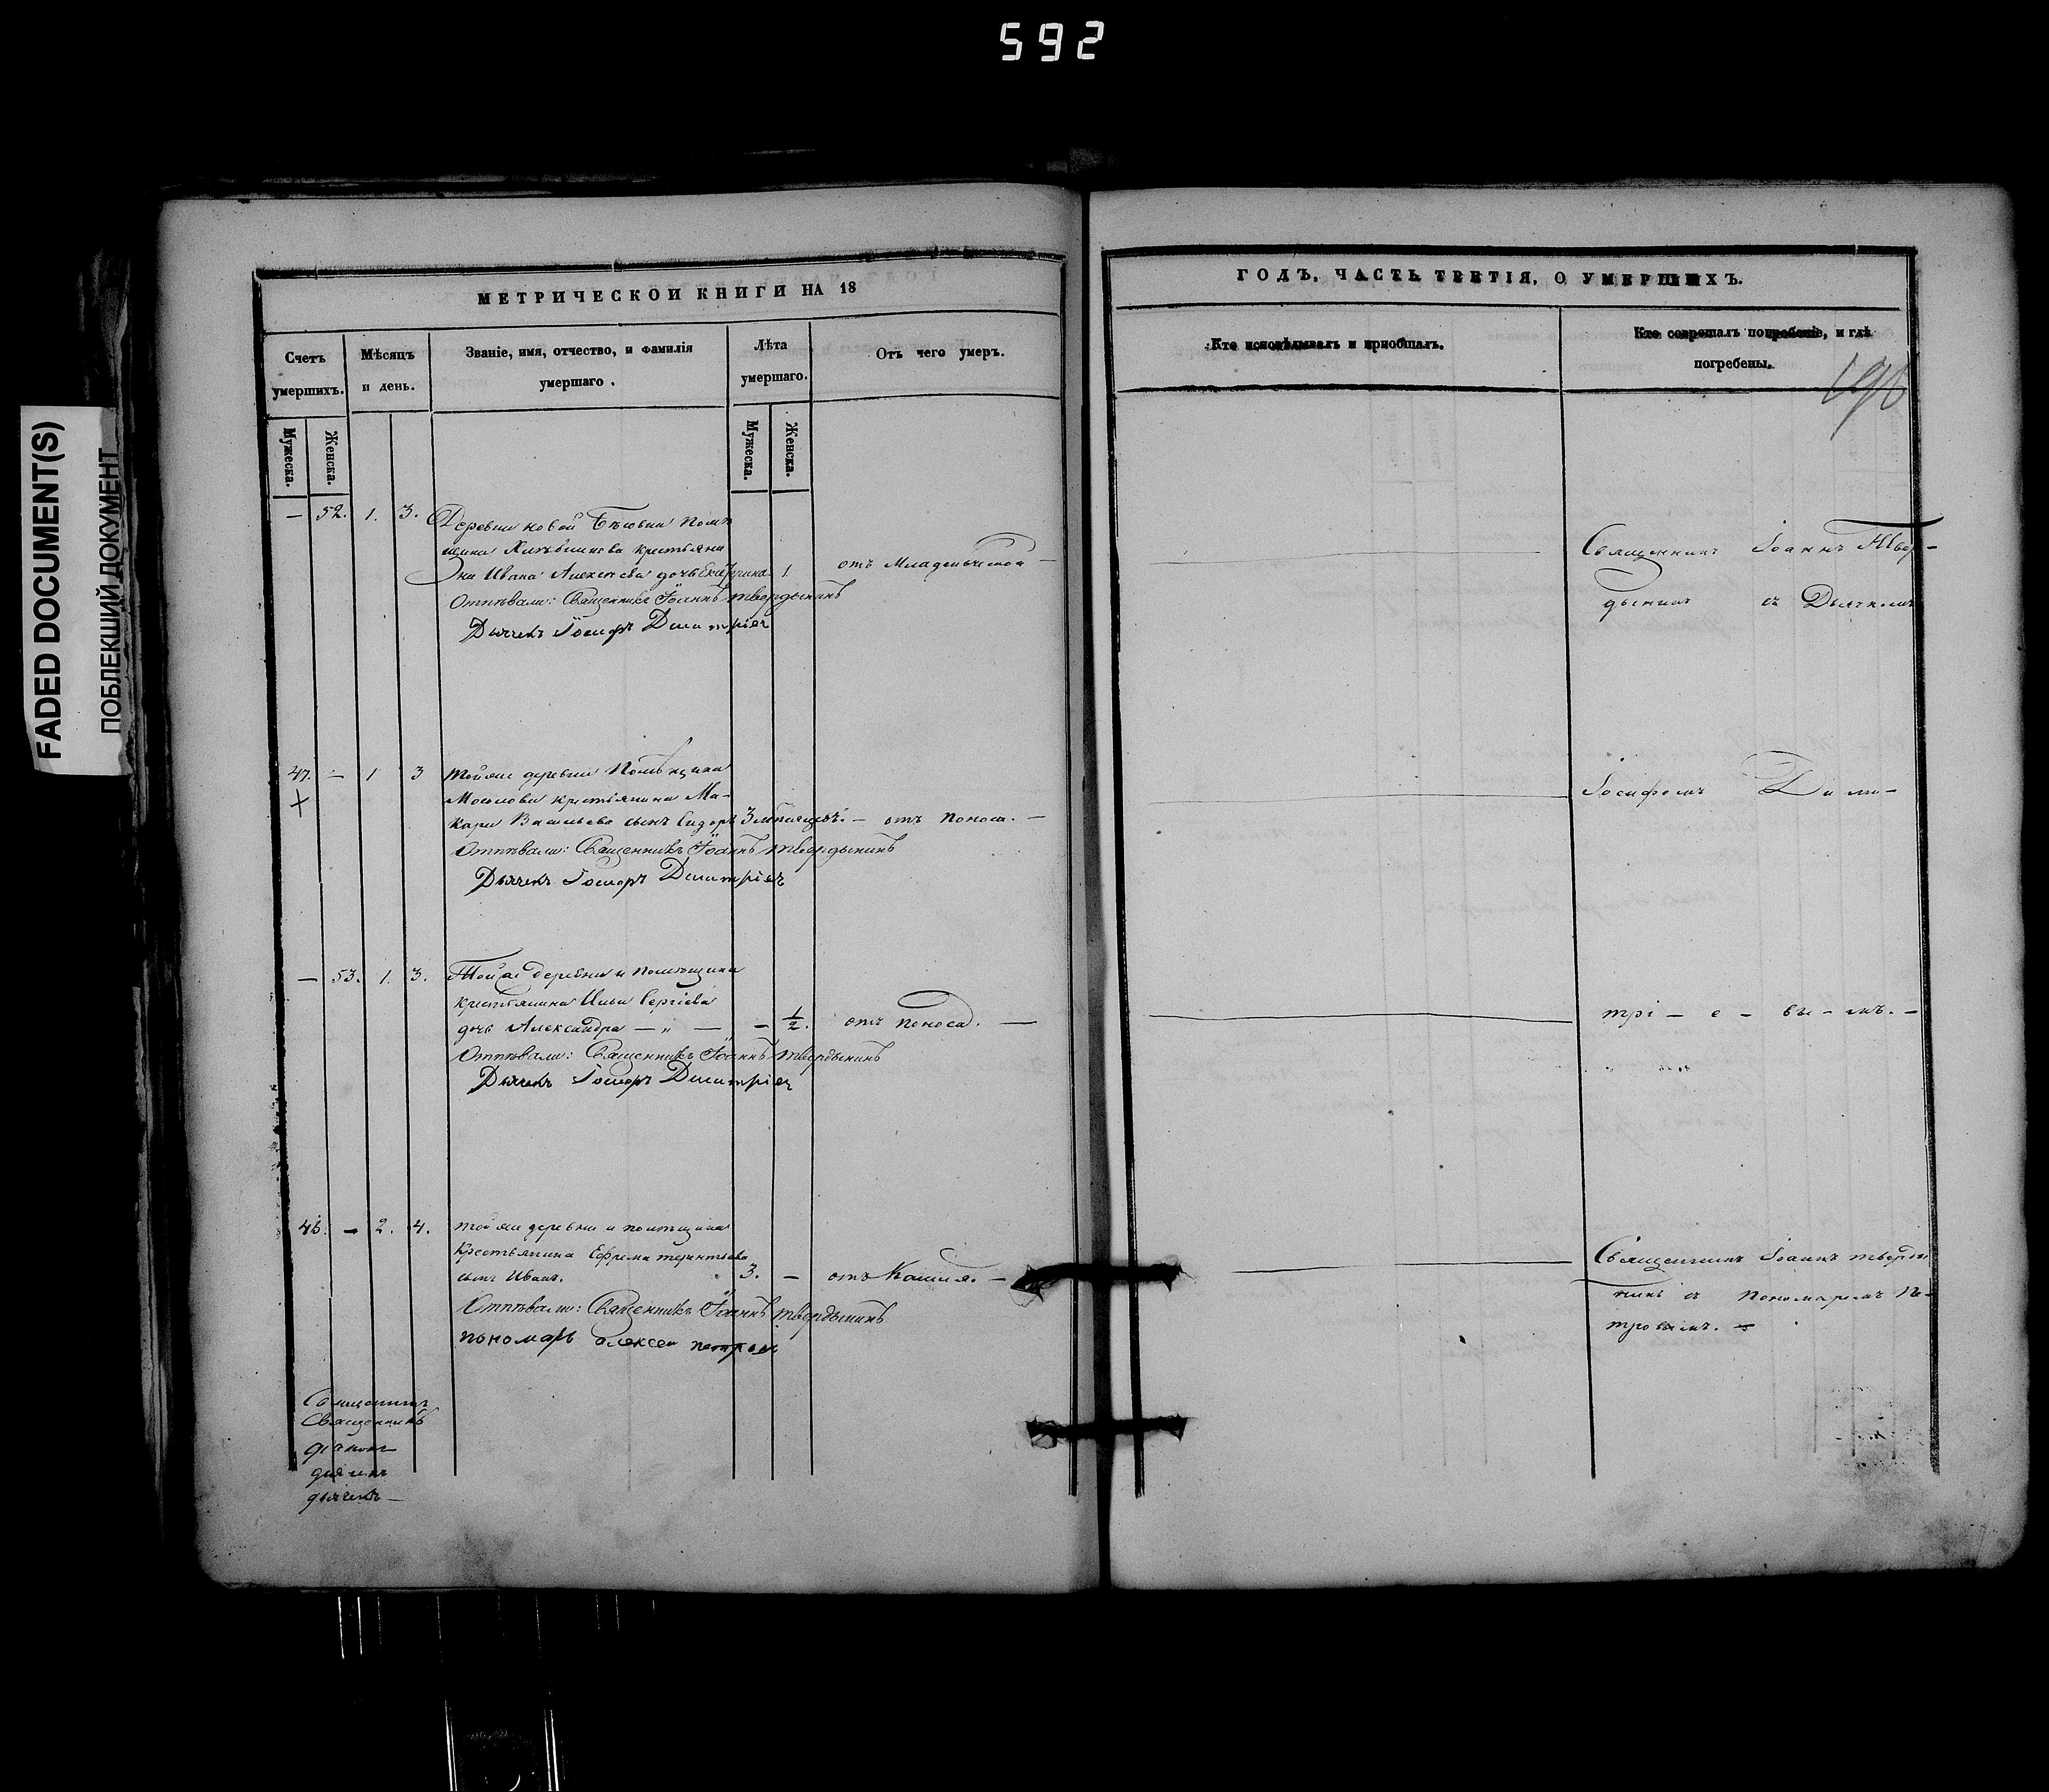 592
FADED DOCUMENT(S)
ПОБЛЕКШИЙ ДОКУМЕНТ
МЕТРИЧЕСКОЙ КНИГИ НА 18
Счетъ умершихъ.
Мужеска.
Женска.
Мѣсяцъ и день.
Званіе, имя, отчество, и фамилія
умершаго.
Лѣта умершаго.
Мужеска.
Женска.
Отъ чего умеръ.
— 52. 1. 3. Деревни новой помѣ
щика крестьяни
на Ивана Алексѣева дочь Екатерина 1. отъ Младенческой —
Отпѣвали: Священникъ Іоаннъ Твердынинъ
Дьячекъ Іосифъ Димитріевъ
47. — 1 3 Той же деревни Помѣщика
Мосолова крестьянина Ма-
кара Васильева сынъ Сидоръ 3 — отъ поноса. —
Отпѣвали: Священникъ Іоаннъ Твердынинъ
Дьячекъ Іосифъ Димитріевъ
— 53. 1. 3. Той же деревни и помѣщика
крестьянина Ильи Сергіева
дочь Александра — „ — — 1/2. отъ поноса. —
Отпѣвали: Священникъ Іоаннъ Твердынинъ
Дьячекъ Іосифъ Димитріевъ
48. — 2. 4. той же деревни и помѣщика
Крестьянина Ефрема Терентьева
сынъ Иванъ. 3. — отъ Кашля. —
Отпѣвали: Священникъ Іоаннъ Твердынинъ
пономарь алексеи петровъ
Священникъ
Священникъ
діаконъ
дьячекъ
дьячекъ —
ГОДЪ, ЧАСТЬ ТРЕТІЯ, О УМЕРШИХЪ.
Кто исповѣдывалъ и пріобщалъ.
Кто совершалъ погребеніе, и гдѣ
погребены.
Священникъ Іоаннъ Твер-
дынинъ съ Дьячкомъ
Іосифомъ Дими-
трі — е — вы — мъ. —
Священникъ Іоаннъ тверды
нинъ съ пономаремъ Пе-
тровымъ.